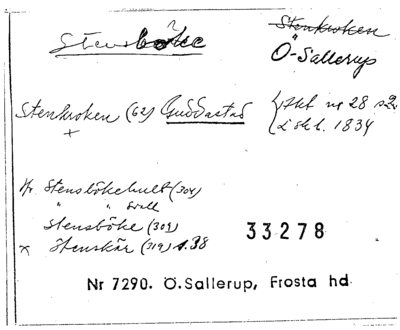 Stensböke ?
Stenkroken
Ö-Sallerup
Stenkroken (62) Guddastad
Akt nr 28
L sk l. 1834
Jfr Stensbökehult (304)
" " Svall
Stensböke (309)
x Stenskär (319) s.38
33278
Nr 7290. Ö.Sallerup, Frosta hd